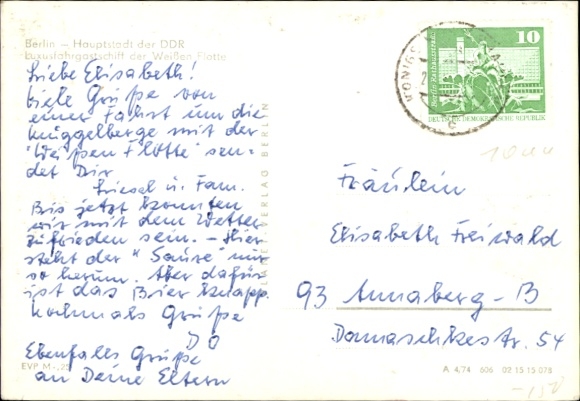 Berlin – Hauptstadt der DDR
Luxusfahrgastschiff der Weißen Flotte
Liebe Elisabeth!
Viele Grüße von
einer Fahrt um die
Müggelberge mit der
"Weißen Flotte" sen-
det Dir
Liesel u. Fam.
Bis jetzt konnten
wir mit dem Wetter
zufrieden sein. – Hier
steht der "Saure" nur
so herum. Aber dafür
ist das Bier knapp.
Nochmals Grüße
D O
Ebenfalls Grüße
an Deine Eltern
EVP M -,25
VERLAG BERLIN
10
DEUTSCHE DEMOKRATISCHE REPUBLIK
Fräulein
Elisabeth Freiwald
93 Annaberg-B
Damaschkestr. 54
A 4,74 606 02 15 15 078